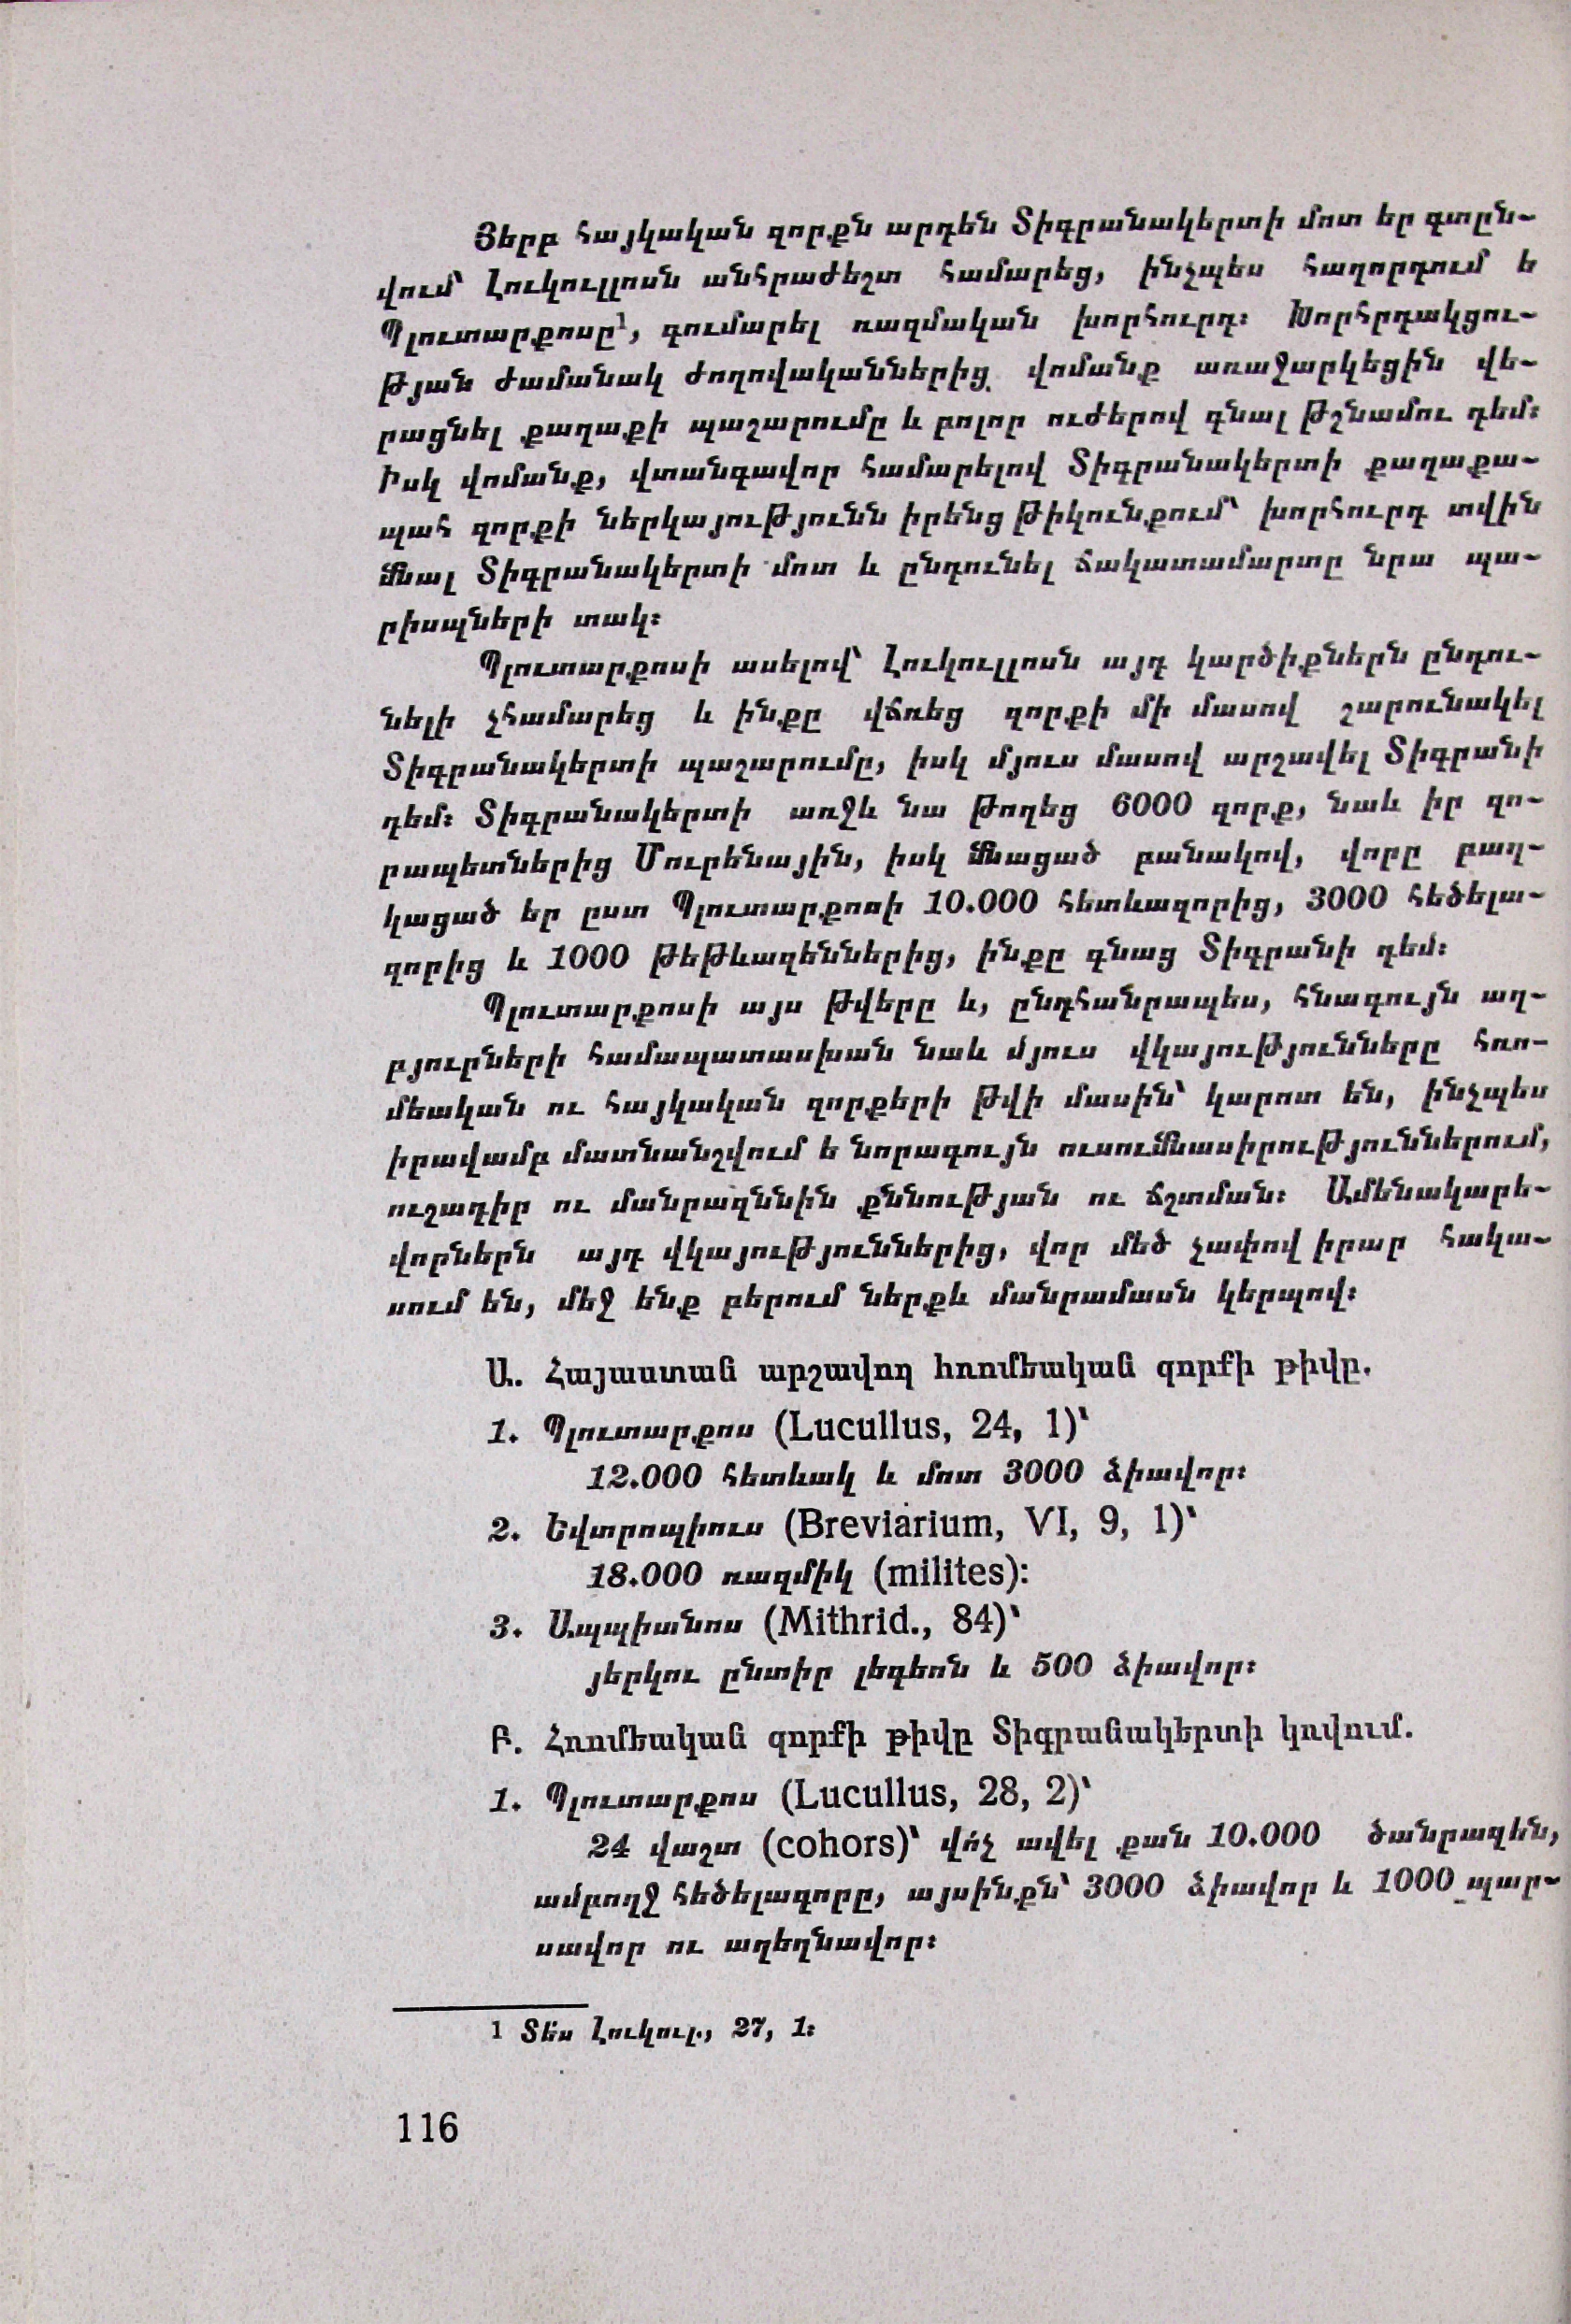 Յերբ հայկական զորքն արդեն Տիգրանակերտի մոտ եր գտըն-
վում՝ Լուկուլլոսն անհրաժեշտ համարեց, ինչպես հաղորդում ե
Պլուտարքոսը¹, գումարել ռազմական խորհուրդ։ Խորհրդակցու-
թյան ժամանակ ժողովականներից վոմանք առաջարկեցին վե-
րացնել քաղաքի պաշարումը և բոլոր ուժերով գնալ թշնամու դեմ։
Իսկ վոմանք, վտանգավոր համարելով Տիգրանակերտի քաղաքա-
պահ զորքի ներկայությունն իրենց թիկունքում՝ խորհուրդ տվին
մնալ Տիգրանակերտի մոտ և ընդունել ճակատամարտը նրա պա-
րիսպների տակ։
Պլուտարքոսի ասելով՝ Լուկուլլոսն այդ կարծիքներն ընդու-
նելի չհամարեց և ինքը վճռեց զորքի մի մասով շարունակել
Տիգրանակերտի պաշարումը, իսկ մյուս մասով արշավել Տիգրանի
դեմ։ Տիգրանակերտի առջև նա թողեց 6000 զորք, նաև իր զո-
րապետներից Մուրենային, իսկ մնացած բանակով, վորը բաղ-
կացած եր ըստ Պլուտարքոսի 10.000 հետևազորից, 3000 հեծելա-
զորից և 1000 թեթևազեններից, ինքը գնաց Տիգրանի դեմ։
Պլուտարքոսի այս թվերը և, ընդհանրապես, հնագույն աղ-
բյուրների համապատասխան նաև մյուս վկայությունները հռո-
մեական ու հայկական զորքերի թվի մասին՝ կարոտ են, ինչպես
իրավամբ մատնանշվում ե նորագույն ուսումնասիրություններում,
ուշադիր ու մանրազննին քննության ու ճշտման։ Ամենակարե-
վորներն այդ վկայություններից, վոր մեծ չափով իրար հակա-
սում են, մեջ ենք բերում ներքև մանրամասն կերպով։
Ա. Հայաստան արշավող հռոմեական զորքի թիվը.
1. Պլուտարքոս (Lucullus, 24, 1)՝
12.000 հետևակ և մոտ 3000 ձիավոր։
2. Եվտրոպիուս (Breviarium, VI, 9, 1)՝
18.000 ռազմիկ (milites)։
3. Ապպիանոս (Mithrid., 84)՝
յերկու ընտիր լեգեոն և 500 ձիավոր։
Բ. Հռոմեական զորքի թիվը Տիգրանակերտի կռվում.
1. Պլուտարքոս (Lucullus, 28, 2)՝
24 վաշտ (cohors)՝ վո՛չ ավել քան 10.000 ծանրազեն,
ամբողջ հեծելազորը, այսինքն՝ 3000 ձիավոր և 1000 պար-
սավոր ու աղեղնավոր։
1 Տե՛ս Լուկուլ., 27, 1։
116